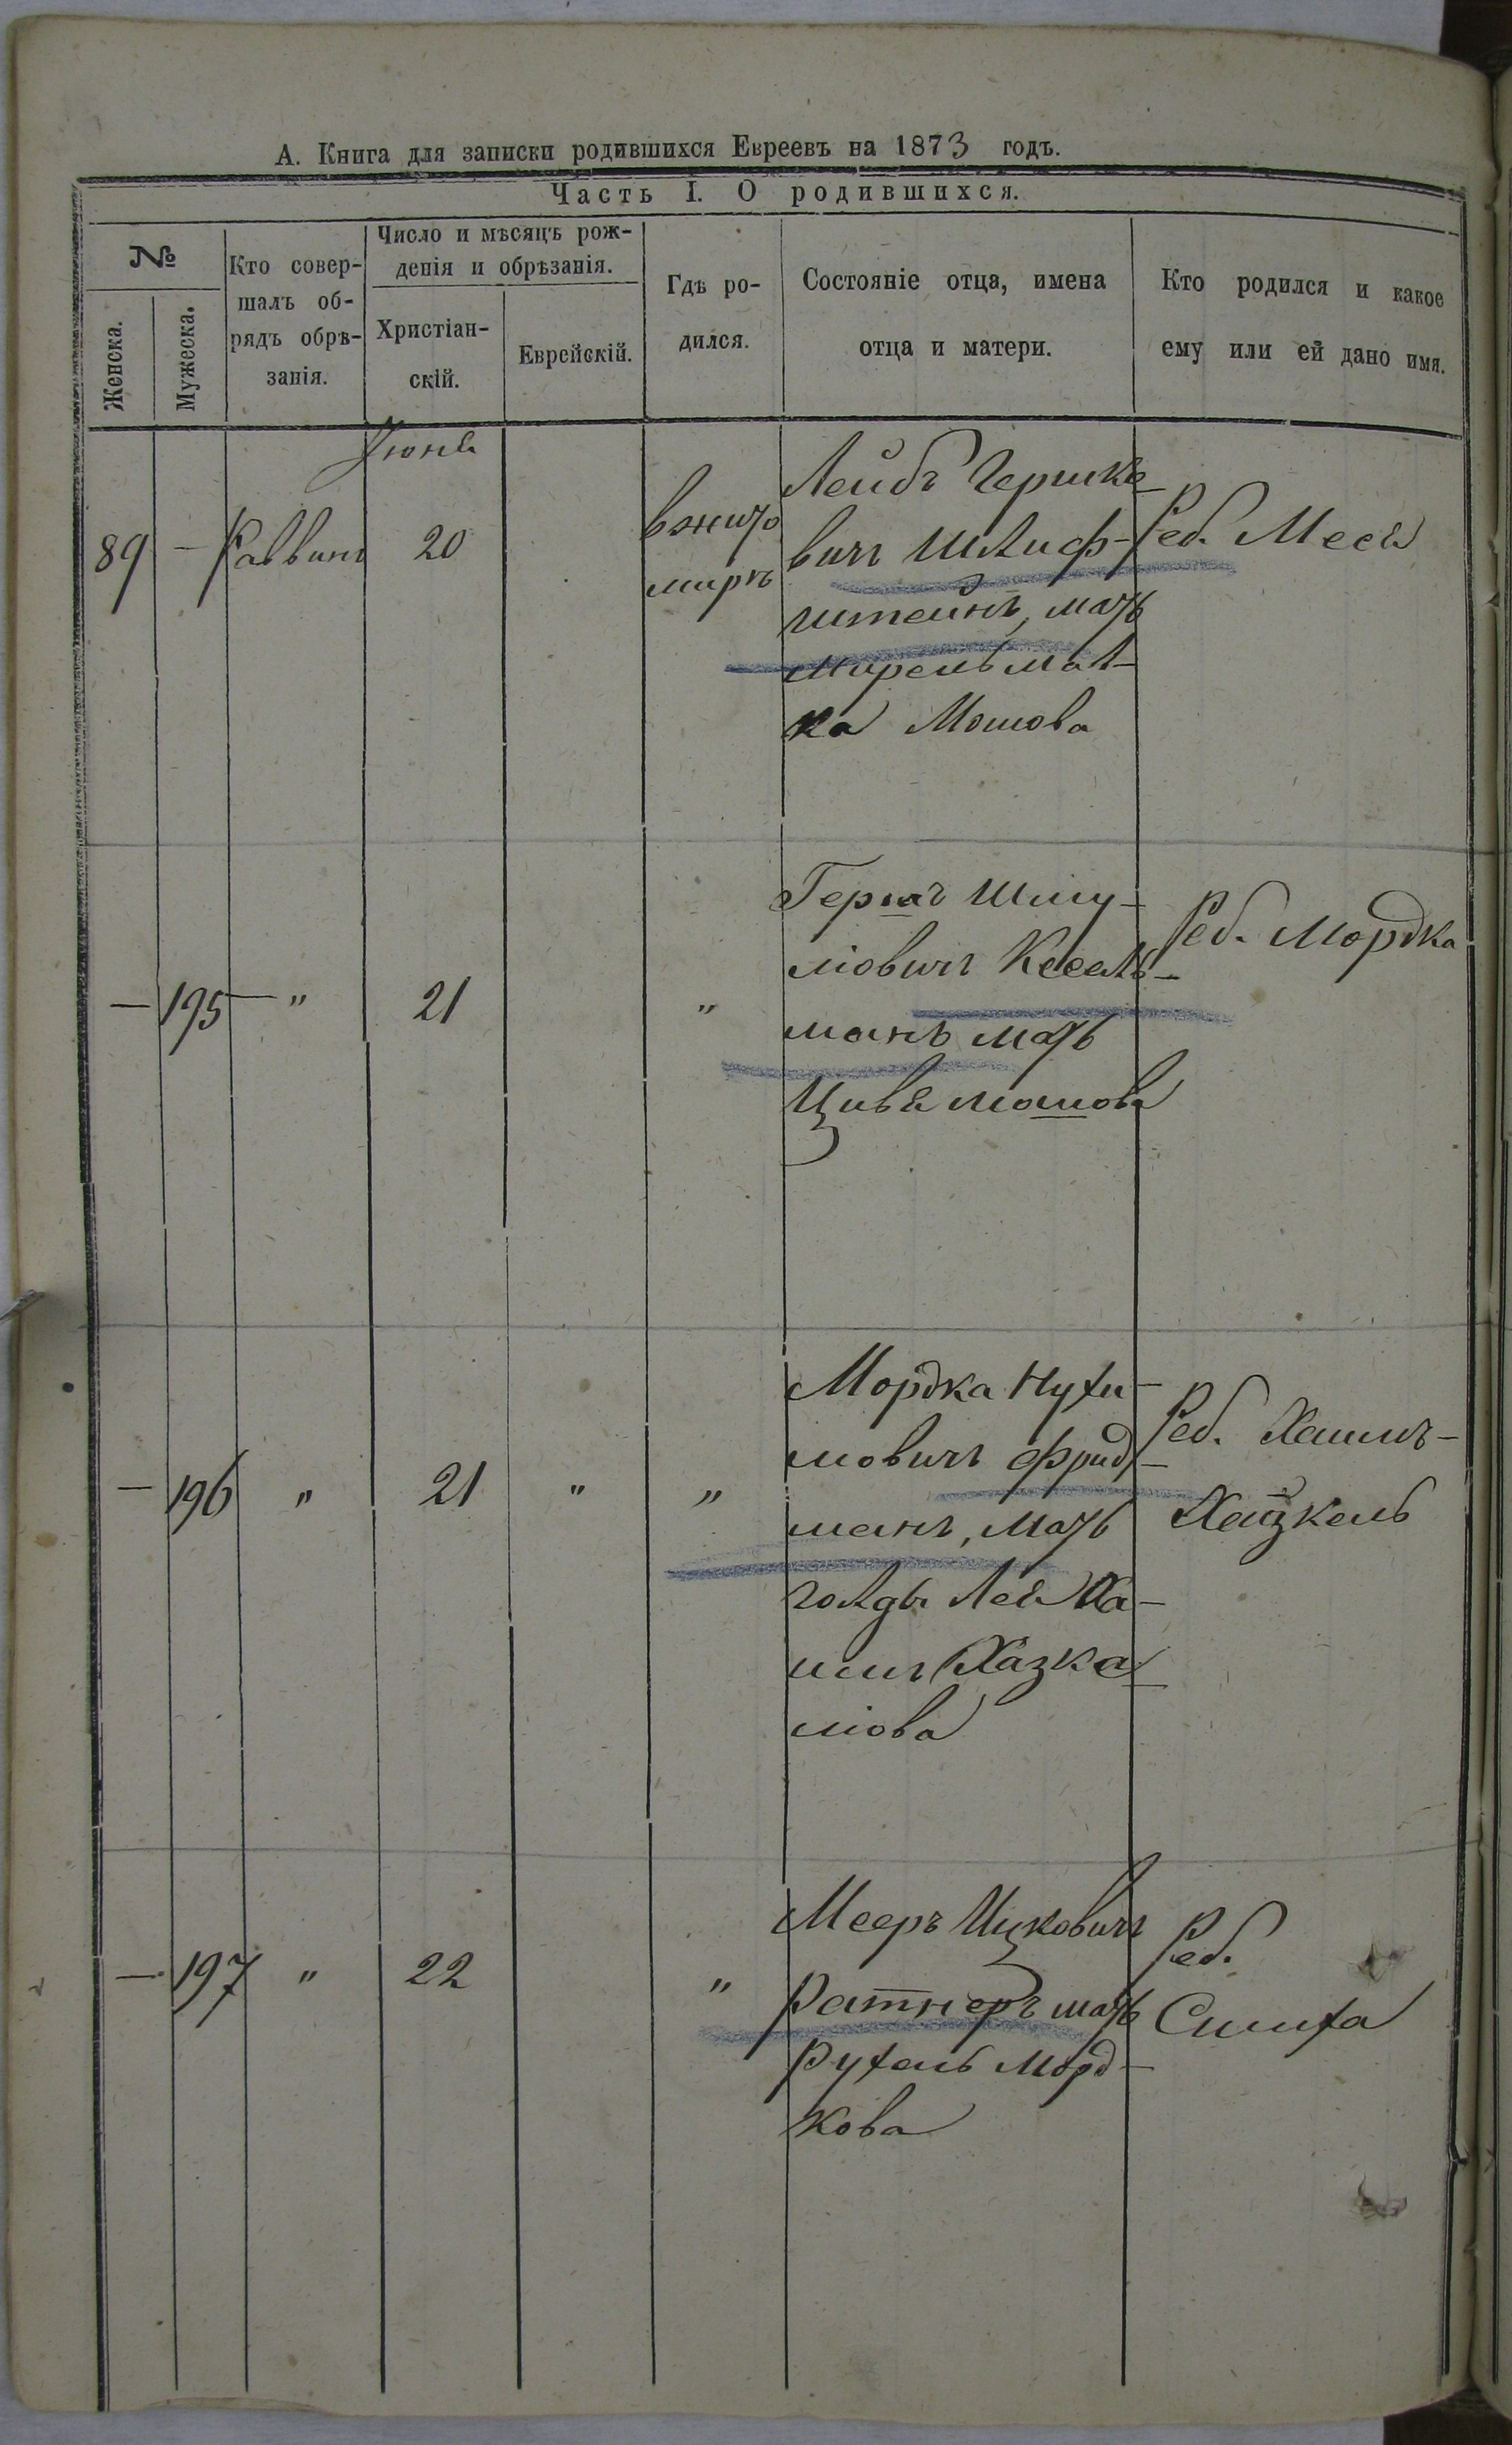 А. Книга для записки родившихся Евреевъ на 1873 годъ.
Часть I. О родившихся.
№
Женска.
Мужеска.
Кто совер-
шалъ об-
рядъ обрѣ-
занія.
Число и мѣсяцъ рож-
денія и обрѣзанія.
Христіан-
скій.
Еврейскій.
Гдѣ ро-
дился.
Состояніе отца, имена
отца и матери.
Кто родился и какое
ему или ей дано имя.
Іюня
89
—
Раввинъ
20
в Жито
мирѣ
Лейбъ Гершко
вичъ Шлиф-
штейнъ, мать
Мирель Мал-
ка Мошова
Реб. Мея
—
195
— "
21
"
Гершъ Шму-
ліовичъ Кесель-
манъ мать
Цивя Мошова
Реб. Мордка
—
196
"
21
"
"
Мордка Нухи-
мовичъ Фрид-
манъ, мать
Голда Лея Ха-
имъ Хазке
ліова
Реб. Хаимъ-
Хацкель
—
197
"
22
"
Мееръ Ицковичъ
Ратнеръ мать
Рухель Морд-
кова
Реб.
Симха